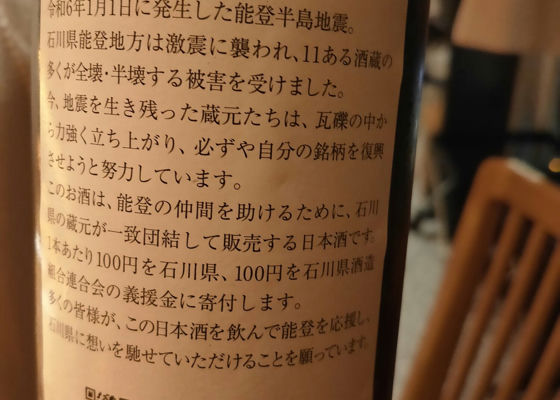 令和6年1月1日に発生した能登半島地震。
石川県能登地方は激震に襲われ、11ある酒蔵の
多くが全壊・半壊する被害を受けました。
今、地震を生き残った蔵元たちは、瓦礫の中か
ら力強く立ち上がり、必ずや自分の銘柄を復興
させようと努力しています。
このお酒は、能登の仲間を助けるために、石川
県の蔵元が一致団結して販売する日本酒です。
1本あたり100円を石川県、100円を石川県酒造
組合連合会の義援金に寄付します。
多くの皆様が、この日本酒を飲んで能登を応援し、
石川県に想いを馳せていただけることを願っています。